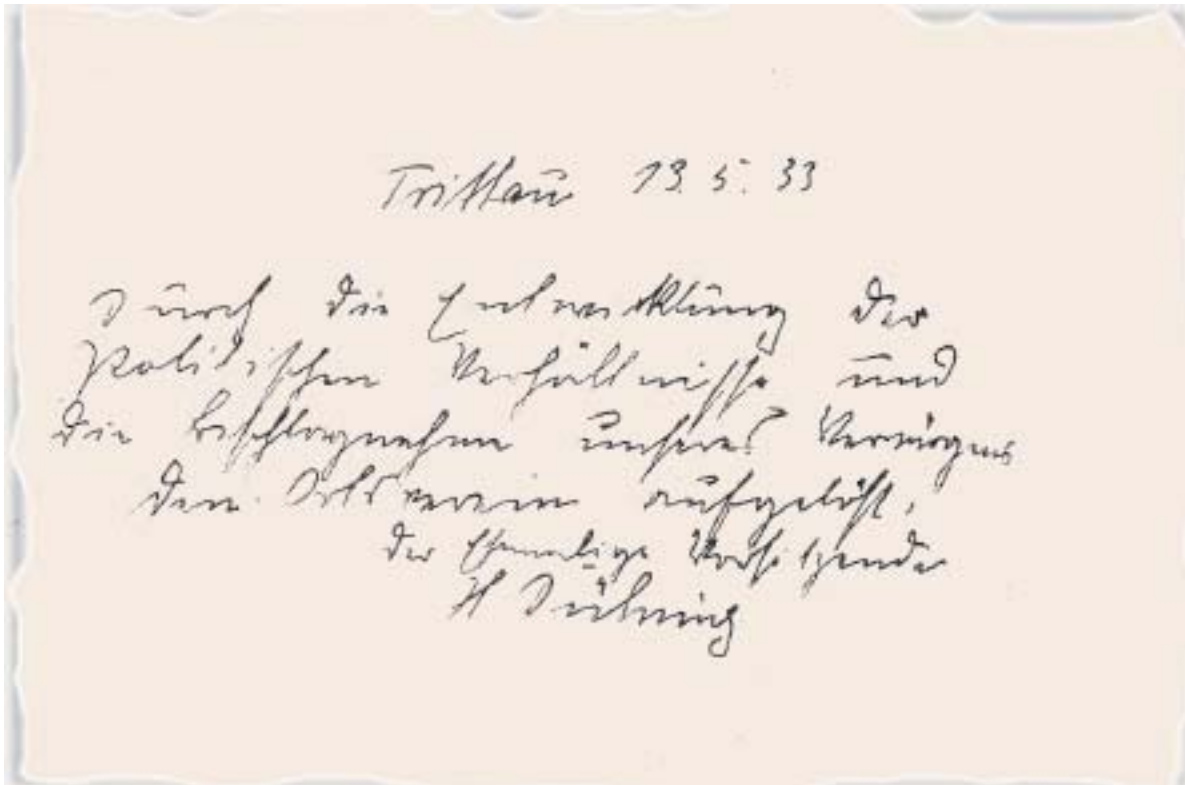 Trittau 19. 5. 33
Durch die Entwicklung der
Politischen Verhältnisse und
die Beschlagnahme unseres
den Ortsverein aufgelöst,
der Ehemalige Vorsitzende
H